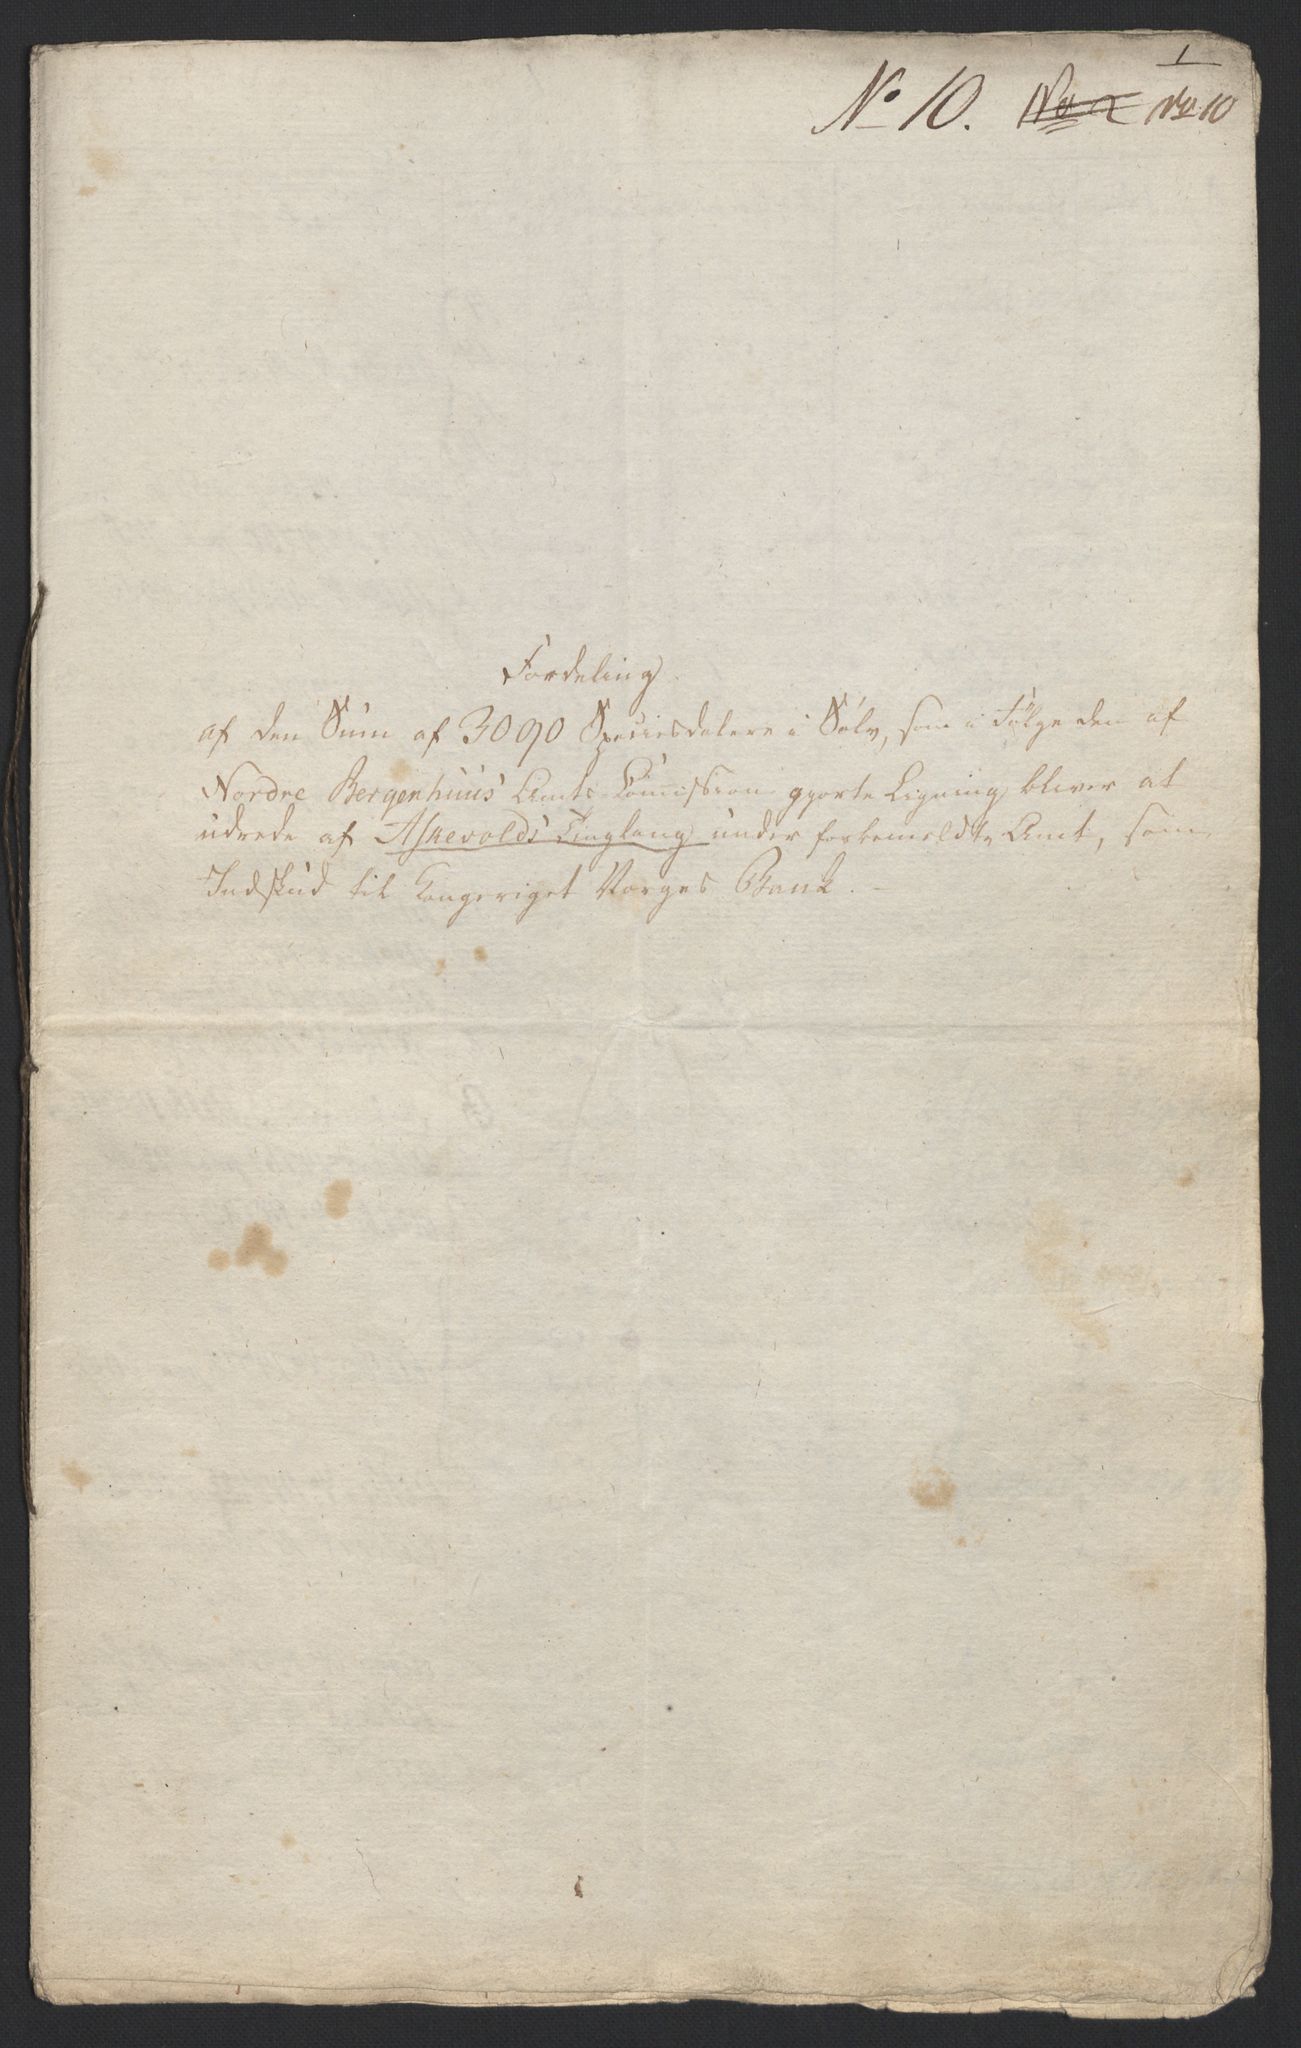 1
No 10. No 2 No 10
Fordeling
af den Sum af 3090 Speciesdalere i Sølv, som i Følge den af
Nordre Bergenhuus' Amts-Commission gjorte Ligning bliver at
udrede af Askevolds Tinglaug under forbemeldte Amt, som
Indskud til Kongeriget Norges Bank. -